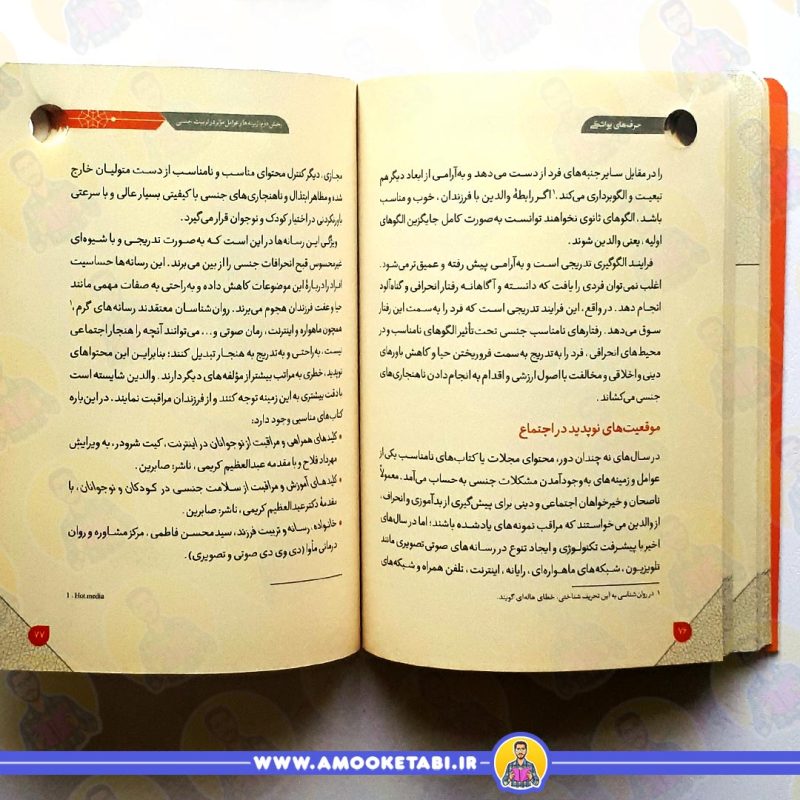 حرف‌های یواشکی
را در مقابل سایر جنبه‌های فرد از دست می‌دهد و به‌آرامی از ابعاد دیگر هم
تبعیت و الگوبرداری می‌کند.۱ اگر رابطهٔ والدین با فرزندان، خوب و مناسب
باشد، الگوهای ثانوی نخواهند توانست به‌صورت کامل جایگزین الگوهای
اولیه، یعنی والدین شوند.
فرایند الگوگیری تدریجی است و به‌آرامی پیش رفته و عمیق‌تر می‌شود.
اغلب نمی‌توان فردی را یافت که دانسته و آگاهانه رفتار انحرافی و گناه‌آلود
انجام دهد. در واقع، این فرایند تدریجی است که فرد را به‌سمت این رفتار
سوق می‌دهد. رفتارهای نامناسب جنسی تحت‌تأثیر الگوهای نامناسب و در
محیط‌های انحرافی، فرد را به‌تدریج به سمت فروریختن حیا و کاهش باورهای
دینی و اخلاقی و مخالفت با اصول ارزشی و اقدام به انجام دادن ناهنجاری‌های
جنسی می‌کشاند.
موقعیت‌های نوپدید در اجتماع
در سال‌های نه چندان دور، محتوای مجلات یا کتاب‌های نامناسب یکی از
عوامل و زمینه‌های به‌وجودآمدن مشکلات جنسی به حساب می‌آمد. معمولاً
ناصحان و خیرخواهان اجتماعی و دینی برای پیش‌گیری از بدآموزی و انحراف،
از والدین می‌خواستند که مراقب نمونه‌های یادشده باشند؛ اما در سال‌های
اخیر با پیشرفت تکنولوژی و ایجاد تنوع در رسانه‌های صوتی تصویری مانند
تلویزیون، شبکه‌های ماهواره‌ای، رایانه، اینترنت، تلفن همراه و شبکه‌های
۱ در روان‌شناسی به این تحریف شناختی، خطای هاله‌ای گویند.
۷۶
بخش دوم: زمینه‌ها و عوامل مؤثر در تربیت جنسی
مجازی، دیگر کنترل محتوای مناسب و نامناسب از دست متولیان خارج
شده و مظاهر ابتذال و ناهنجاری‌های جنسی با کیفیتی بسیار عالی و با سرعتی
باورنکردنی در اختیار کودک و نوجوان قرار می‌گیرد.
ویژگی این رسانه‌ها در این است که به‌صورت تدریجی و با شیوه‌ای
غیرمحسوس قبح انحرافات جنسی را از بین می‌برند. این رسانه‌ها حساسیت
افراد را دربارهٔ این موضوعات کاهش داده و به راحتی به صفات مهمی مانند
حیا و عفت فرزندان هجوم می‌برند. روان‌شناسان معتقدند رسانه‌های گرم،۱
همچون ماهواره و اینترنت، رمان صوتی و...، می‌توانند آنچه را هنجار اجتماعی
نیست، به‌راحتی و به‌تدریج به هنجار تبدیل کنند؛ بنابراین این محتواهای
نوپدید، خطری به مراتب بیشتر از مؤلفه‌های دیگر دارند. والدین شایسته است
با دقت بیشتری به این زمینه توجه کنند و از فرزندان مراقبت نمایند. در این‌باره
کتاب‌های مناسبی وجود دارد:
• کلیدهای همراهی و مراقبت از نوجوانان در اینترنت، کیت شرودر، به ویرایش
مهرداد فلاح و با مقدمه عبدالعظیم کریمی، ناشر: صابرین.
• کلیدهای آموزش و مراقبت از سلامت جنسی در کودکان و نوجوانان، با
مقدمهٔ دکتر عبدالعظیم کریمی، ناشر: صابرین.
• خانواده، رسانه و تربیت فرزند، سید محسن فاطمی، مرکز مشاوره و روان
درمانی مأوا (دی وی دی صوتی و تصویری).
1 . Hot media
۷۷
WWW.AMOOKETABI.IR